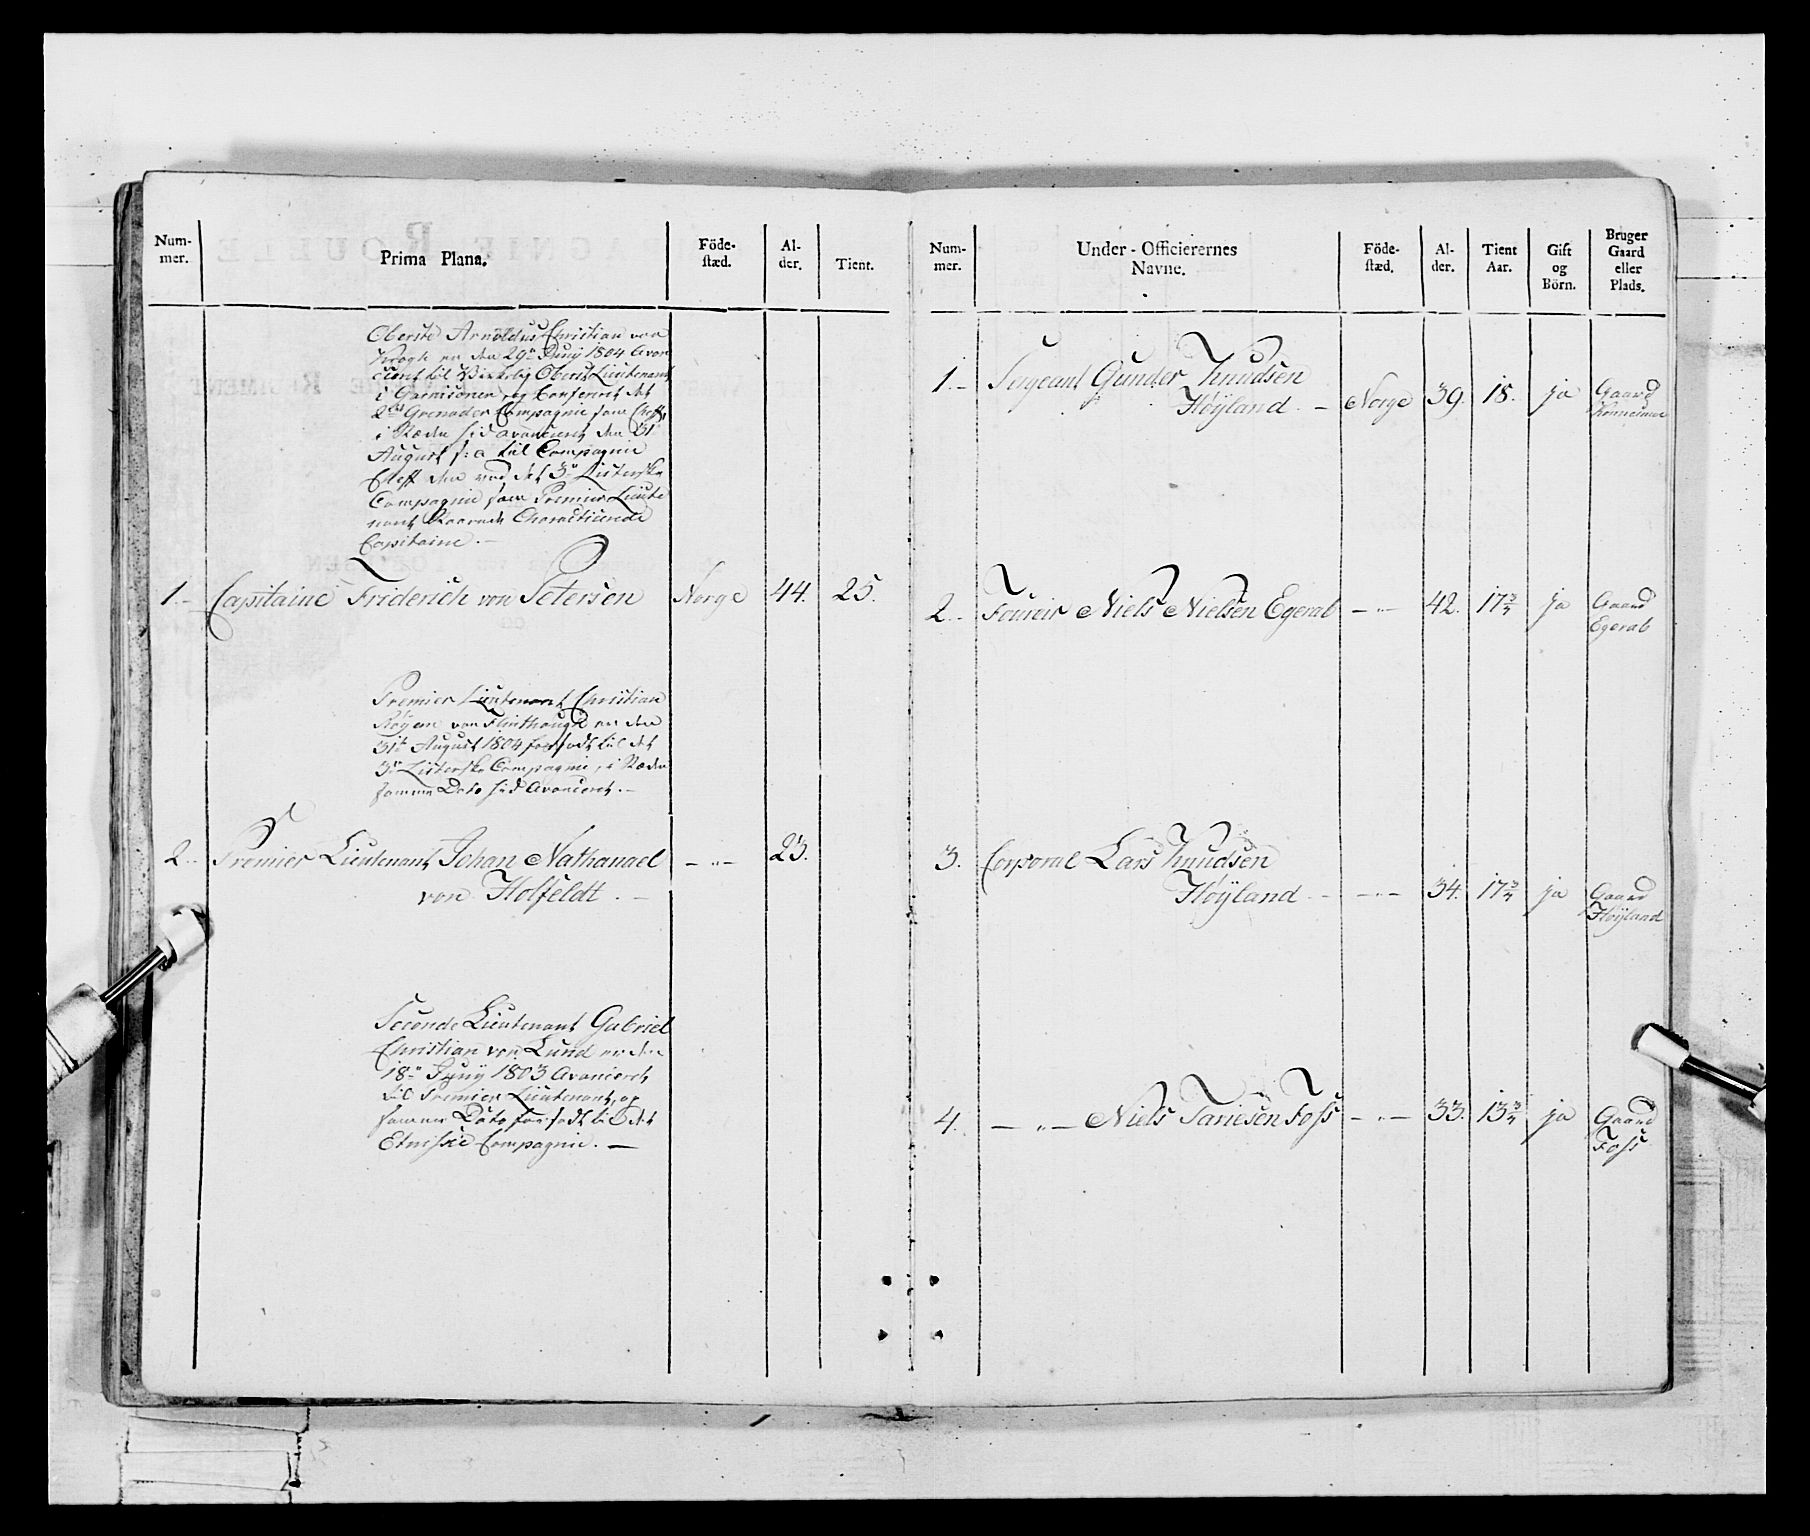 Num-
mer.
Prima Plana.
Föde-
stæd.
Al-
der.
Tient.
Oberste Arnoldus Christian von
Krogh er den 29de Juny 1804 Avan
ceret til Virkelig Oberst Lieutenant
i Garnisonen, og Conferert det
2det Grenader Compagnie som Cheff,
i Stæden hid avanceret den 31
August s: a: til Compagnie
Cheff den ved det 3de Listerske
Compagnie som Premier Lieute
nant staaende Characteriserede
Capitaine. —
1. Capitaine Friderich von Petersen Norge 44. 25.
Premier Lieutenant Christian
von Flinthough er den
31te August 1804 forsadt til det
3de Listerske Compagnie, i Stæden
samme Dato hid Avanceret. —
2. Premier Lieutenant Johan Nathanael — „ — 23.
von Holfeldt. —
Seconde Lieutenant Gabriel
Christian von Lund er den
18de Juny 1803 Avanceret
til Premier Lieutenant, og
samme Dato forsadt til det
Compagnie. —
Num-
mer.
Under-Officierernes
Navne.
Föde-
stæd.
Al-
der.
Tient
Aar.
Gift
og
Börn.
Bruger
Gaard
eller
Plads.
1. Sergeant Gunder Knudsen
Høÿland. — Norge 39. 18. ja Gaard
2. Foureir Niels Nielsen Egerab — „ — 42. 17 3/4 ja Gaard
Egerab
3. Corporal Lars Knudsen
Høÿland — „ — 34. 17 3/4 ja Gaard
Høÿland
4. — „ — Niels Tariesen Foss — „ — 33. 13 3/4 ja Gaard
Foss